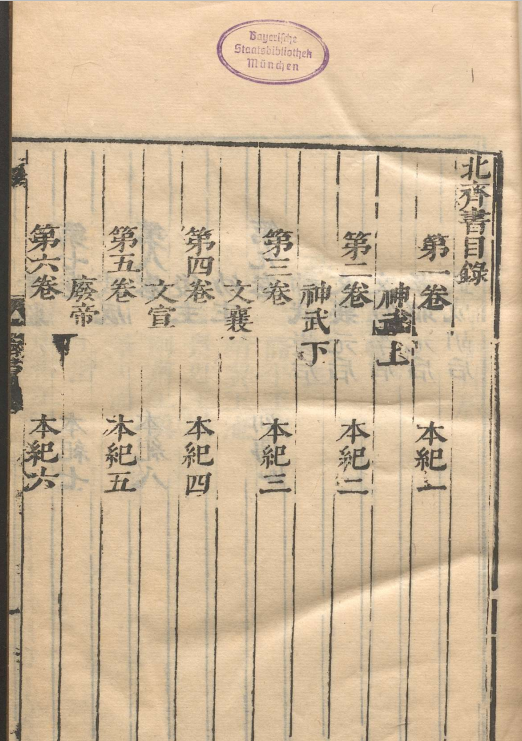 Bayerische
Staatsbibliothek
München
北齊書目錄
第一卷 本紀一
神武上
第二卷 本紀二
神武下
第三卷 本紀三
文襄
第四卷 本紀四
文宣
第五卷 本紀五
廢帝
第六卷 本紀六